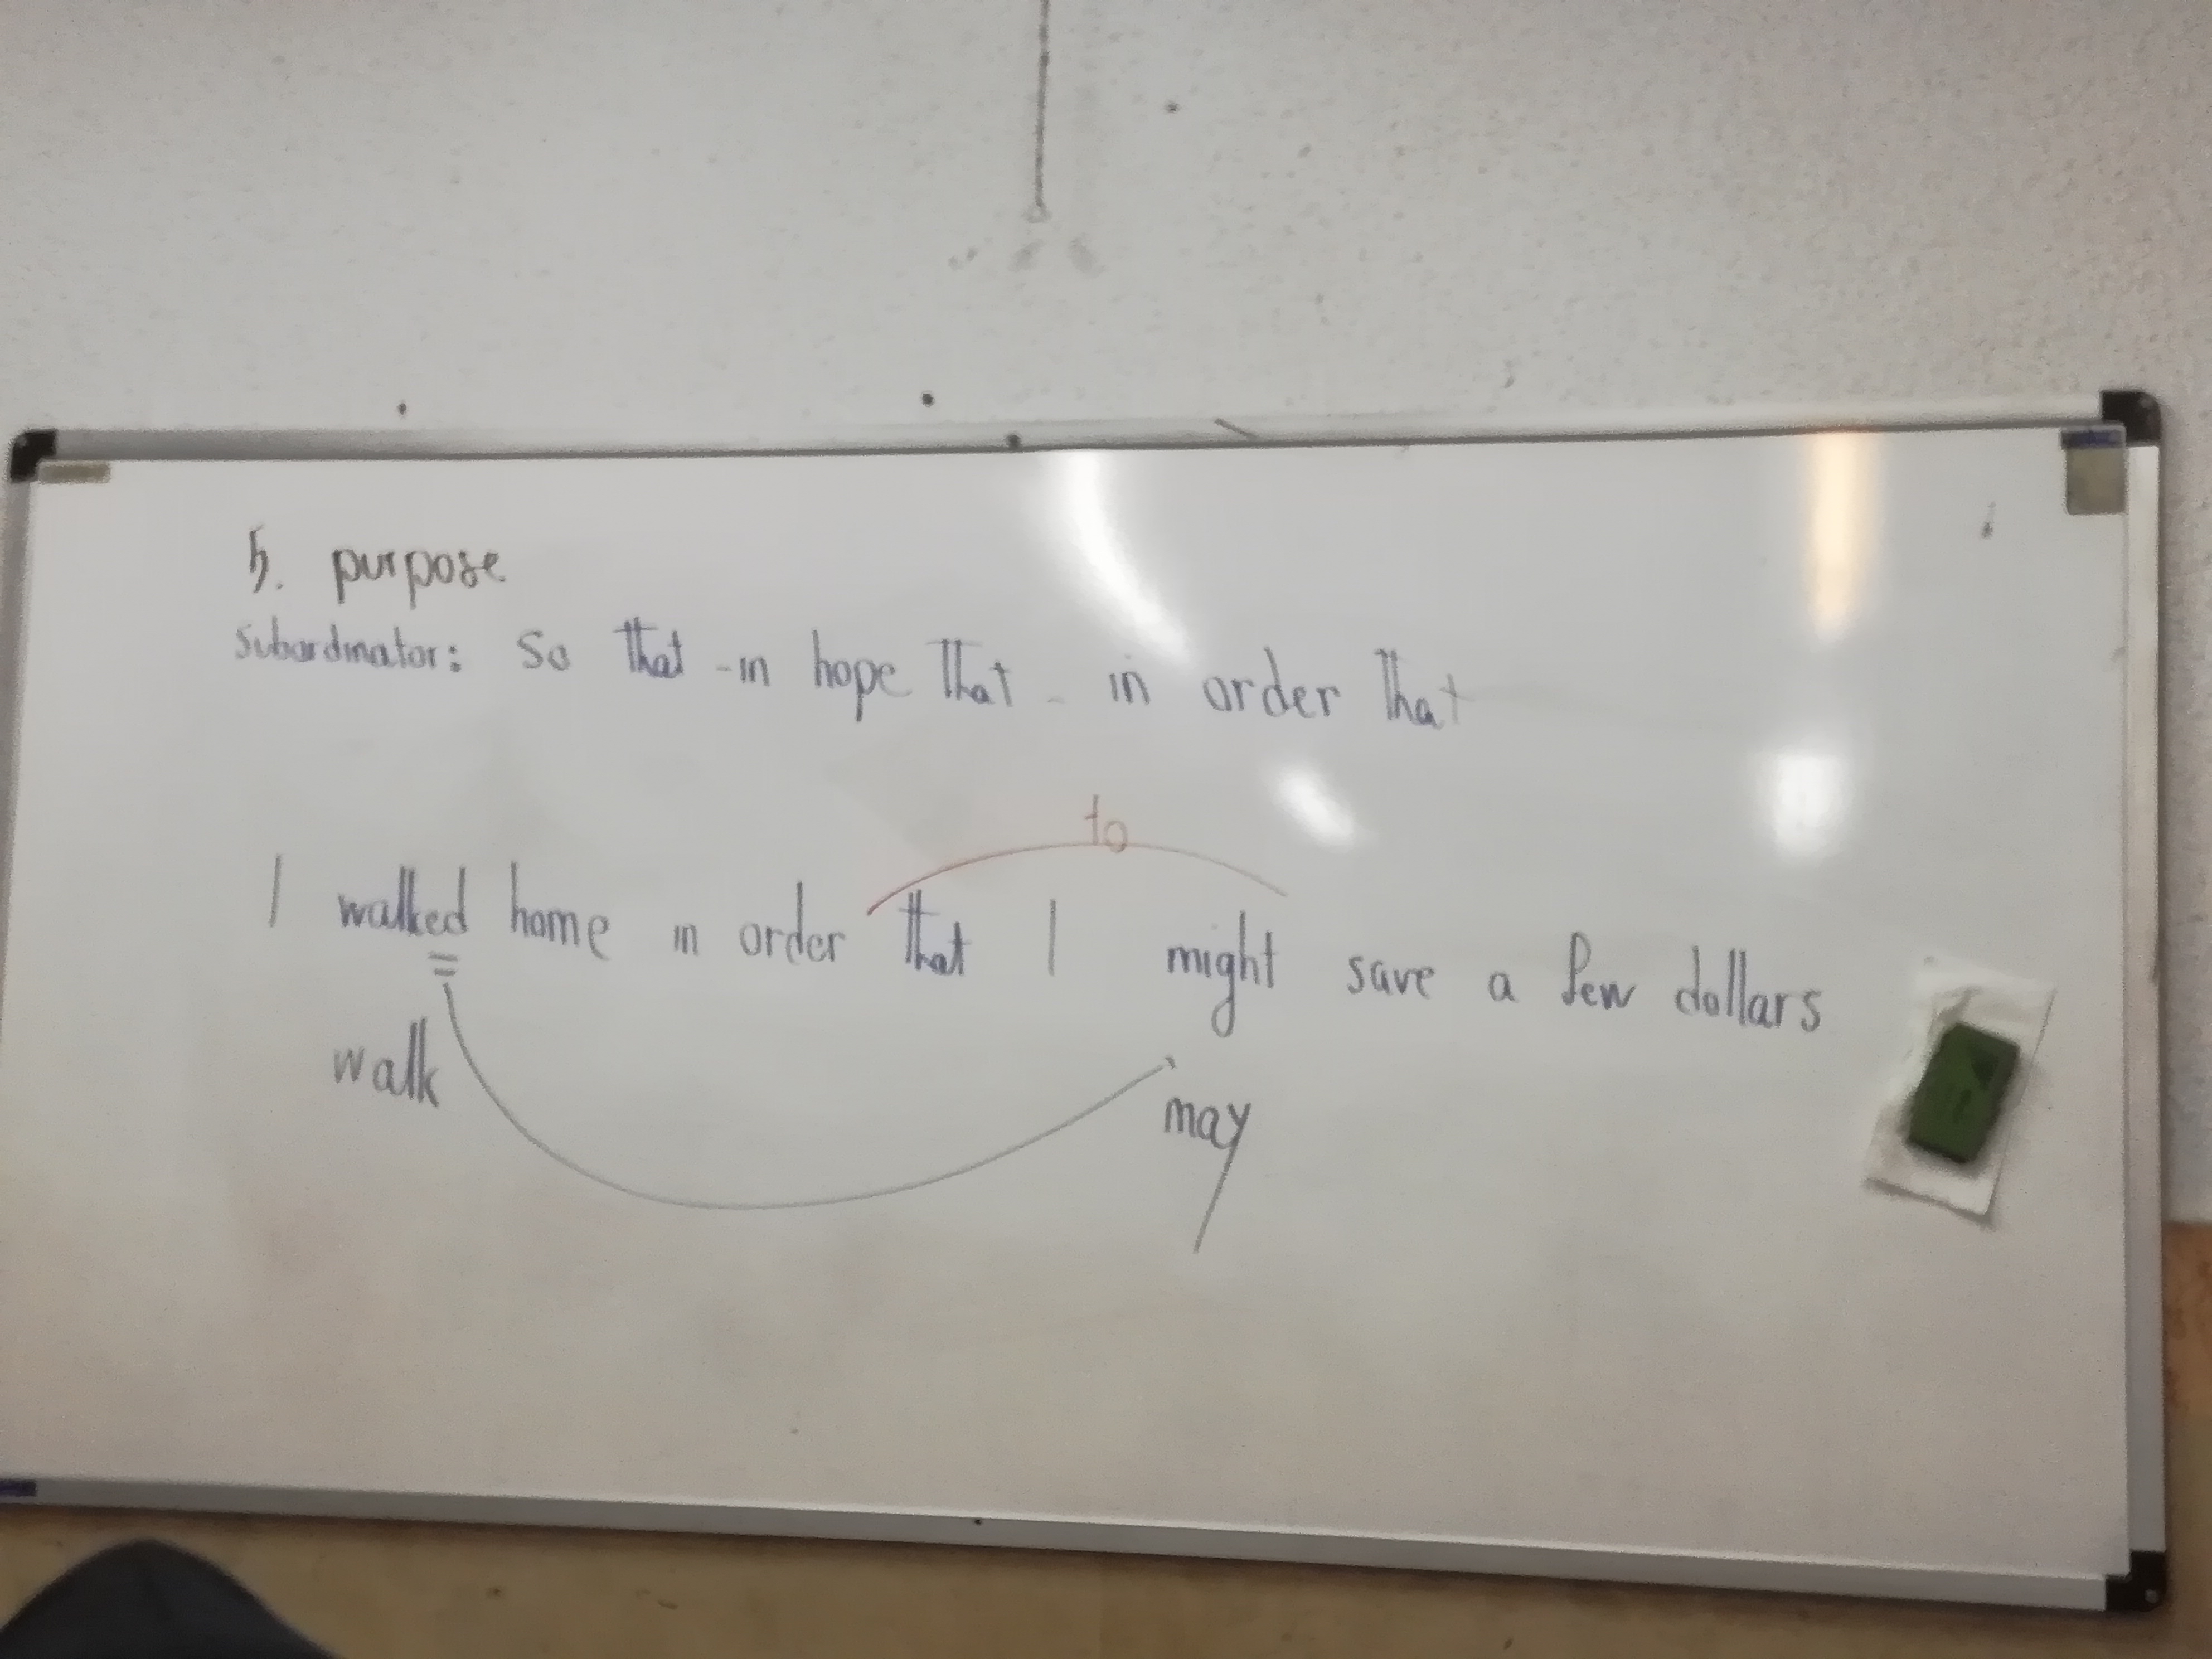 5. purpose
subordinator: So that - in hope that - in order that
to
I walked home in order that I might save a few dollars
walk
may